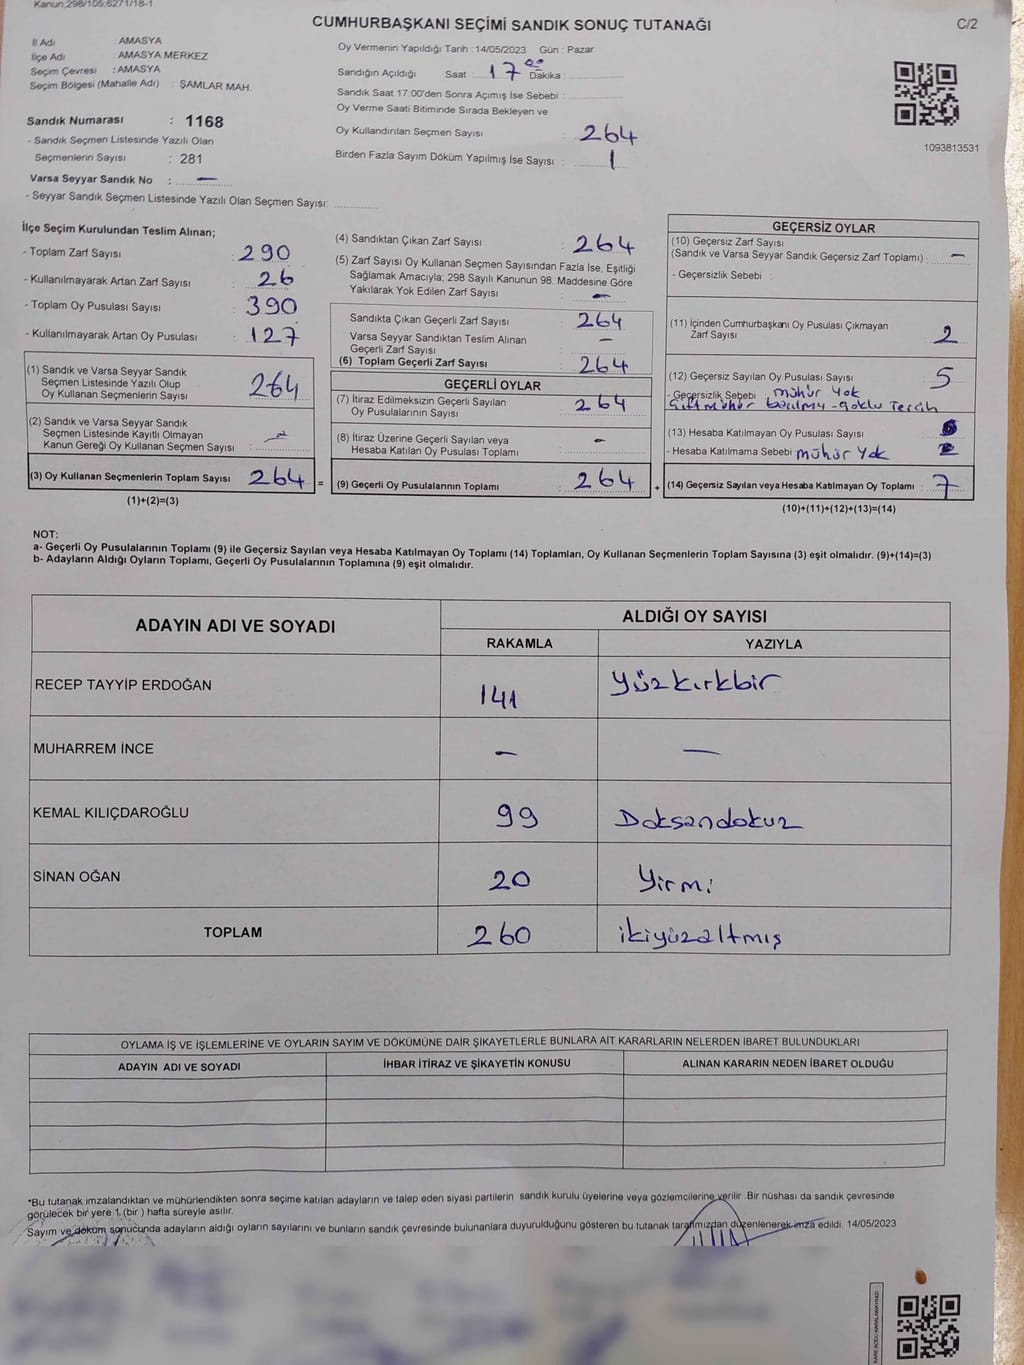 Kanun:298/105,6271/18-1
CUMHURBAŞKANI SEÇİMİ SANDIK SONUÇ TUTANAĞI
C/2
İl Adı : AMASYA
İlçe Adı : AMASYA MERKEZ
Seçim Çevresi : AMASYA
Seçim Bölgesi (Mahalle Adı) : ŞAMLAR MAH.
Sandık Numarası : 1168
- Sandık Seçmen Listesinde Yazılı Olan
Seçmenlerin Sayısı : 281
Varsa Seyyar Sandık No : —
- Seyyar Sandık Seçmen Listesinde Yazılı Olan Seçmen Sayısı:
Oy Vermenin Yapıldığı Tarih : 14/05/2023 Gün : Pazar
Sandığın Açıldığı Saat 17 Dakika : 00
Sandık Saat 17:00'den Sonra Açımış İse Sebebi :
Oy Verme Saati Bitiminde Sırada Bekleyen ve
Oy Kullandırılan Seçmen Sayısı : 264
Birden Fazla Sayım Döküm Yapılmış İse Sayısı : 1
1093813531
İlçe Seçim Kurulundan Teslim Alınan;
- Toplam Zarf Sayısı : 290
- Kullanılmayarak Artan Zarf Sayısı : 26
- Toplam Oy Pusulası Sayısı : 390
- Kullanılmayarak Artan Oy Pusulası : 127
(1) Sandık ve Varsa Seyyar Sandık
Seçmen Listesinde Yazılı Olup
Oy Kullanan Seçmenlerin Sayısı 264
(2) Sandık ve Varsa Seyyar Sandık
Seçmen Listesinde Kayıtlı Olmayan
Kanun Gereği Oy Kullanan Seçmen Sayısı :
(3) Oy Kullanan Seçmenlerin Toplam Sayısı 264 =
(1)+(2)=(3)
(4) Sandıktan Çıkan Zarf Sayısı : 264
(5) Zarf Sayısı Oy Kullanan Seçmen Sayısından Fazla İse, Eşitliği
Sağlamak Amacıyla; 298 Sayılı Kanunun 98. Maddesine Göre
Yakılarak Yok Edilen Zarf Sayısı : —
Sandıkta Çıkan Geçerli Zarf Sayısı : 264
Varsa Seyyar Sandıktan Teslim Alınan
Geçerli Zarf Sayısı : —
(6) Toplam Geçerli Zarf Sayısı : 264
GEÇERLİ OYLAR
(7) İtiraz Edilmeksizin Geçerli Sayılan
Oy Pusulalarının Sayısı : 264
(8) İtiraz Üzerine Geçerli Sayılan veya
Hesaba Katılan Oy Pusulası Toplamı : —
(9) Geçerli Oy Pusulalarının Toplamı : 264 +
GEÇERSİZ OYLAR
(10) Geçersiz Zarf Sayısı
(Sandık ve Varsa Seyyar Sandık Geçersiz Zarf Toplamı) : —
- Geçersizlik Sebebi :
(11) İçinden Cumhurbaşkanı Oy Pusulası Çıkmayan
Zarf Sayısı : 2
(12) Geçersiz Sayılan Oy Pusulası Sayısı : 5
- Geçersizlik Sebebi : mühür Yok
Çift mühür basılmış -çoklu Tercih
(13) Hesaba Katılmayan Oy Pusulası Sayısı :
- Hesaba Katılmama Sebebi : mühür Yok
(14) Geçersiz Sayılan veya Hesaba Katılmayan Oy Toplamı : 7
(10)+(11)+(12)+(13)=(14)
NOT:
a- Geçerli Oy Pusulalarının Toplamı (9) ile Geçersiz Sayılan veya Hesaba Katılmayan Oy Toplamı (14) Toplamları, Oy Kullanan Seçmenlerin Toplam Sayısına (3) eşit olmalıdır. (9)+(14)=(3)
b- Adayların Aldığı Oyların Toplamı, Geçerli Oy Pusulalarının Toplamına (9) eşit olmalıdır.
ADAYIN ADI VE SOYADI
ALDIĞI OY SAYISI
RAKAMLA YAZIYLA
RECEP TAYYİP ERDOĞAN 141 Yüzkırkbir
MUHARREM İNCE — —
KEMAL KILIÇDAROĞLU 99 Doksandokuz
SİNAN OĞAN 20 Yirmi
TOPLAM 260 ikiyüzaltmış
OYLAMA İŞ VE İŞLEMLERİNE VE OYLARIN SAYIM VE DÖKÜMÜNE DAİR ŞİKAYETLERLE BUNLARA AİT KARARLARIN NELERDEN İBARET BULUNDUKLARI
ADAYIN ADI VE SOYADI İHBAR İTİRAZ VE ŞİKAYETİN KONUSU ALINAN KARARIN NEDEN İBARET OLDUĞU
*Bu tutanak imzalandıktan ve mühürlendikten sonra seçime katılan adayların ve talep eden siyasi partilerin sandık kurulu üyelerine veya gözlemcilerine verilir. Bir nüshası da sandık çevresinde
görülecek bir yere 1 (bir ) hafta süreyle asılır.
Sayım ve döküm sonucunda adayların aldığı oyların sayılarını ve bunların sandık çevresinde bulunanlara duyurulduğunu gösteren bu tutanak tarafımızdan düzenlenerek imza edildi. 14/05/2023